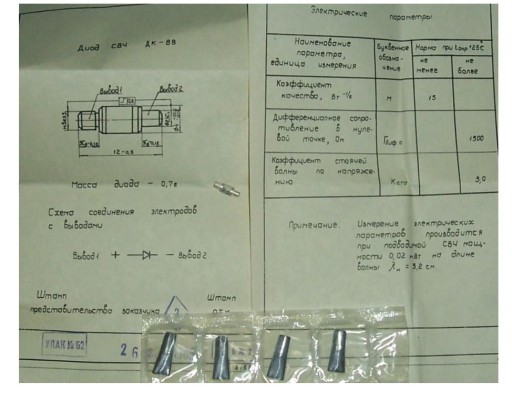 Диод СВЧ ДК-8В
Вывод 1
Вывод 2
12-0,5
Масса диода - 0,7г
Схема соединения электродов
с выводами
Вывод 1 + — Вывод 2
Штамп
представительства заказчика
Штамп
УПАК № 62
2 6
Электрические параметры
Наименование
параметра,
единица измерения
Буквенное
обозна-
чение
Норма при
не
менее
не
более
Коэффициент
качества, Вт
М
15
Дифференциальное сопро-
тивление в нуле-
вой точке, Ом
1500
Коэффициент стоячей
волны по напряже-
нию
3,0
Примечание. Измерение электрических
параметров производится
при подводимой СВЧ мощ-
ности 0,02 мВт на длине
волны = 3,2 см.